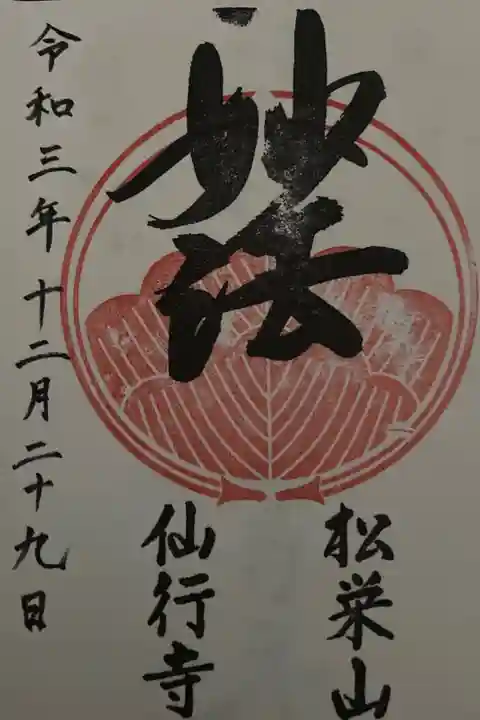 妙法
松栄山
仙行寺
令和三年十二月二十九日